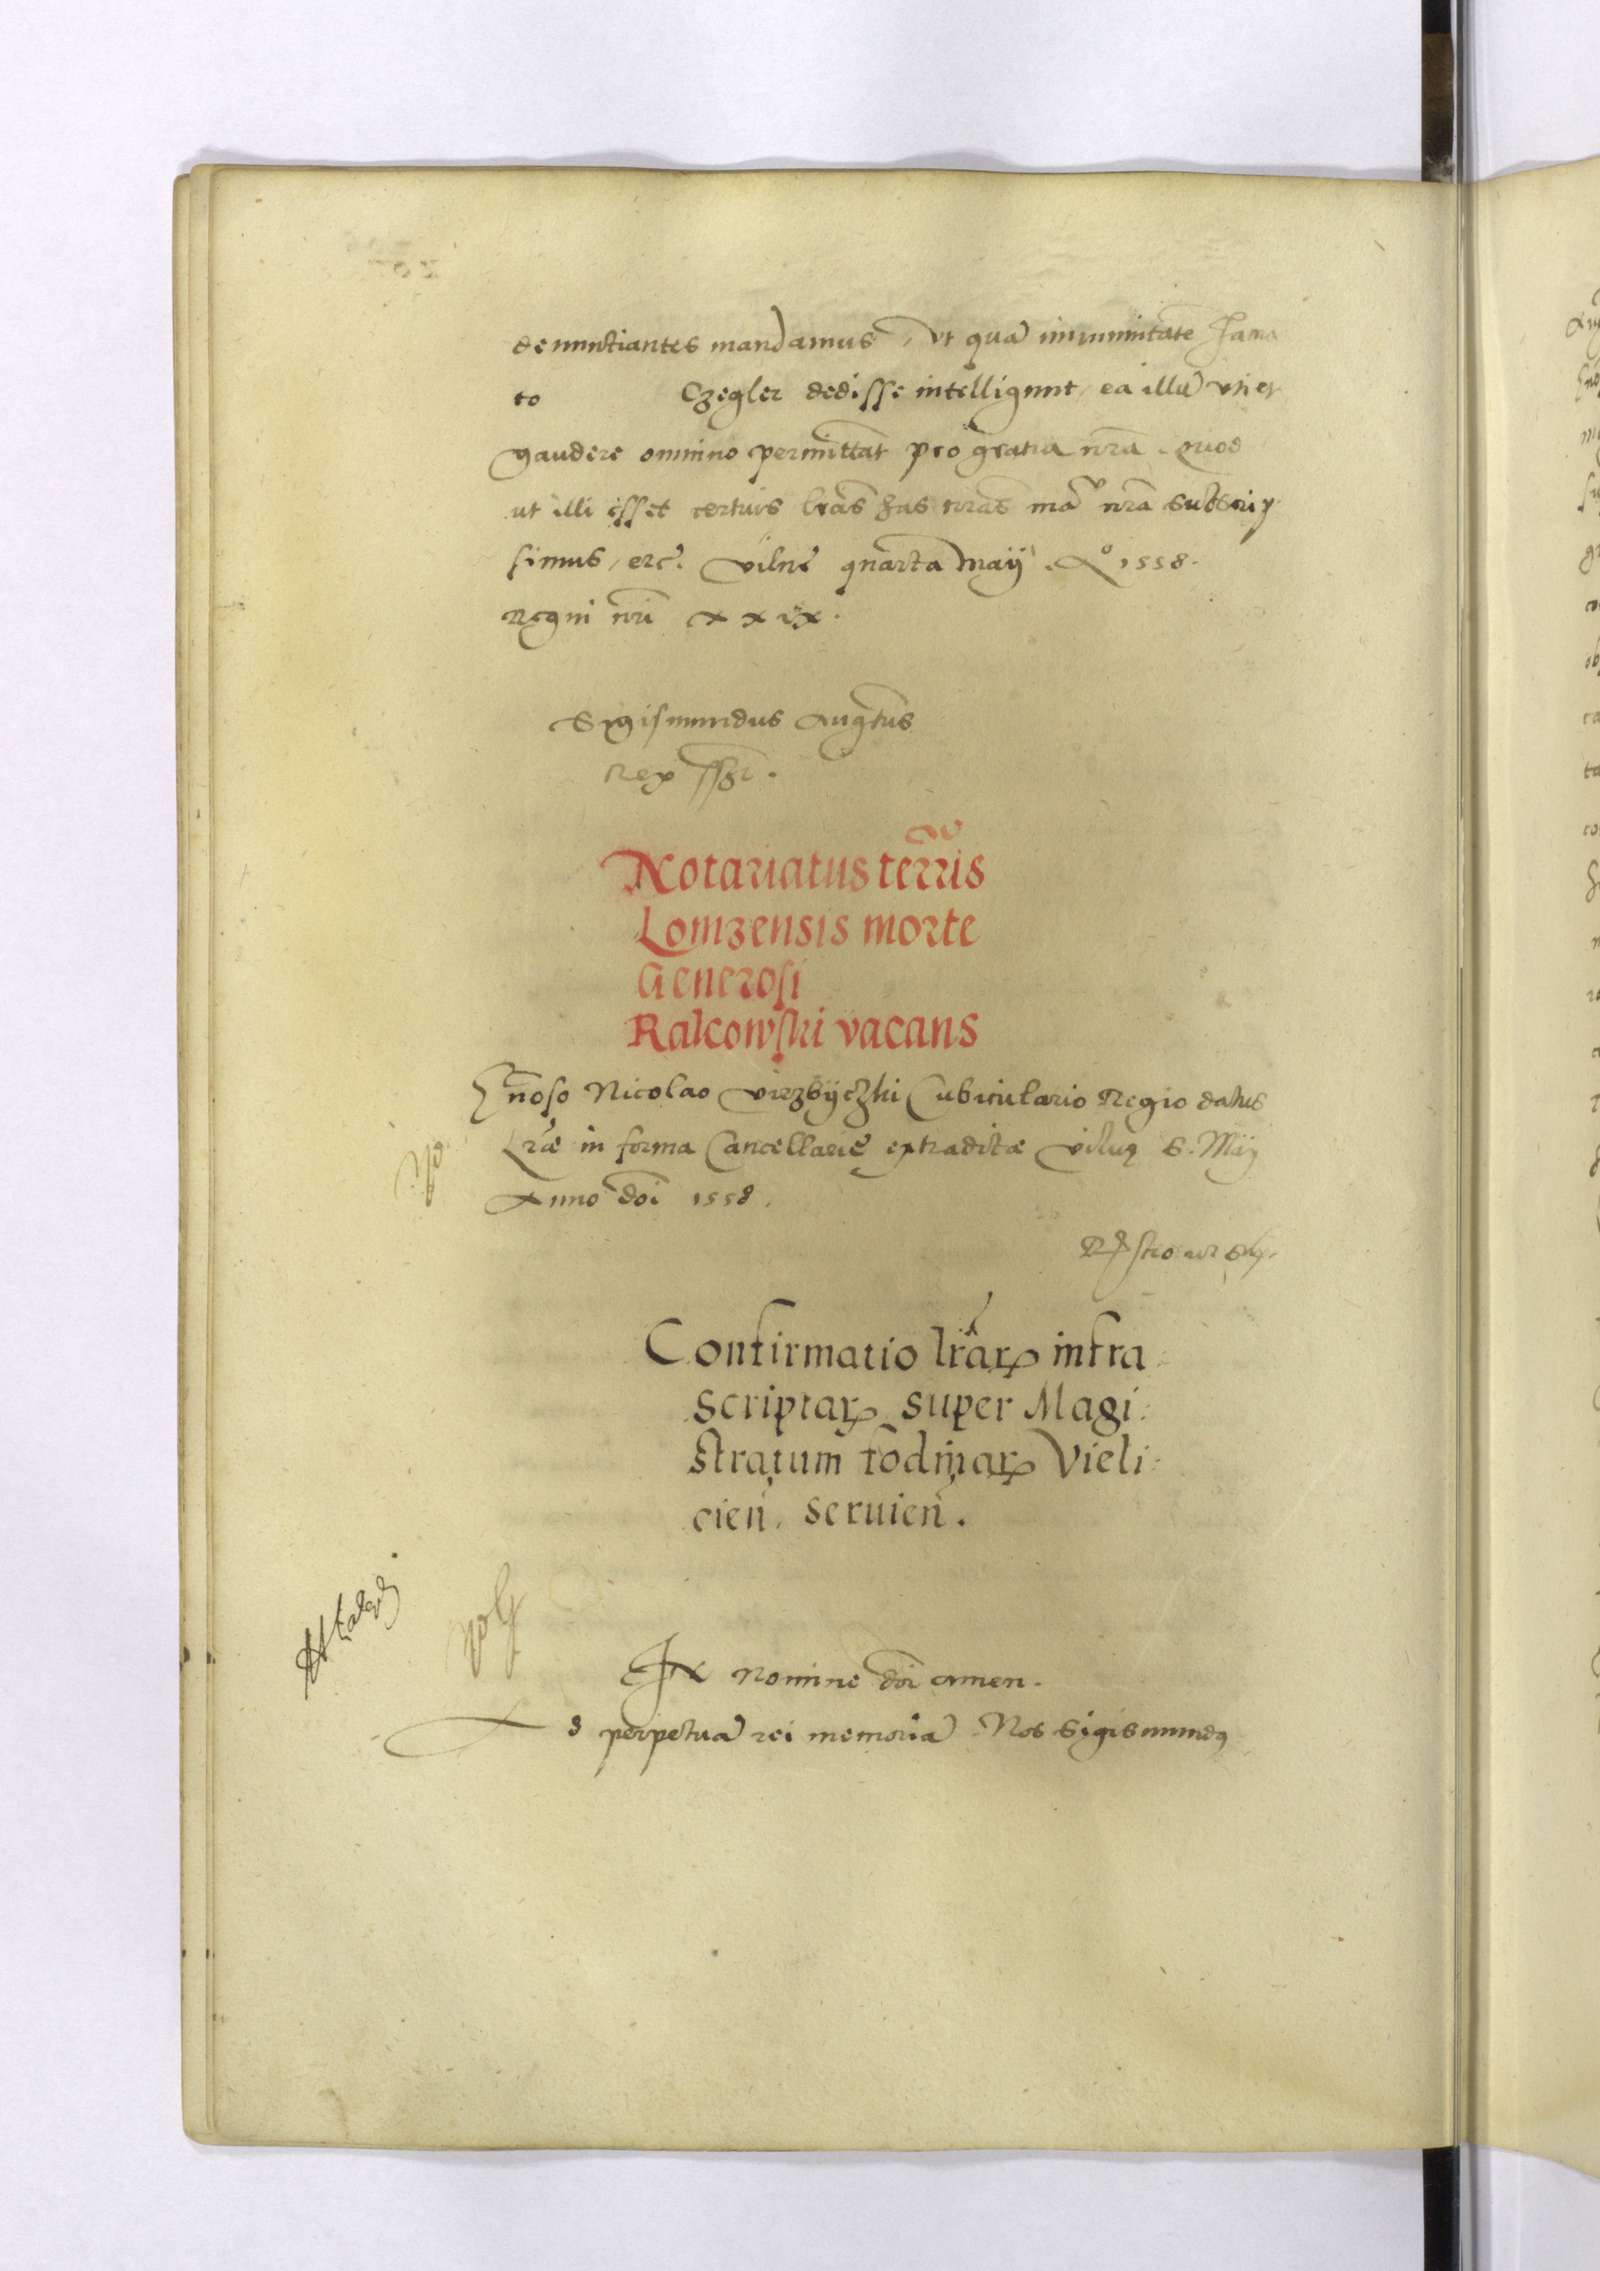 denunctiantes mandamus, ut quā immunitatē fama
to Czegler dedisse intelligunt, ea illū uti et
gaudere omnino permittāt pro gratia nrā. quod
ut illi esset certius lrās has nrās mā nrā subscrip
simus, etc. Vilnę quarta Maÿ. Aº 1558.
Regni nrī XXIX.
Sigismundus Augtus
Rex sszt.
Notariatus terris
Lomzensis morte
Generosi
Rakowski vacans
Gnoso Nicolao Virzbyczki Cubiculario Regio datus
Lrae in forma Cancellarię extraditae Vilnę 6. Maÿ
Anno doī 1558.
Confirmatio lrārꝝ infra
scriptarꝝ super Magi:
stratum fodinarꝝ Vieli:
cien̄. seruien̄.
IN nomine doī amen.
Ad perpetuā rei memoriā. Nos Sigismundꝰ